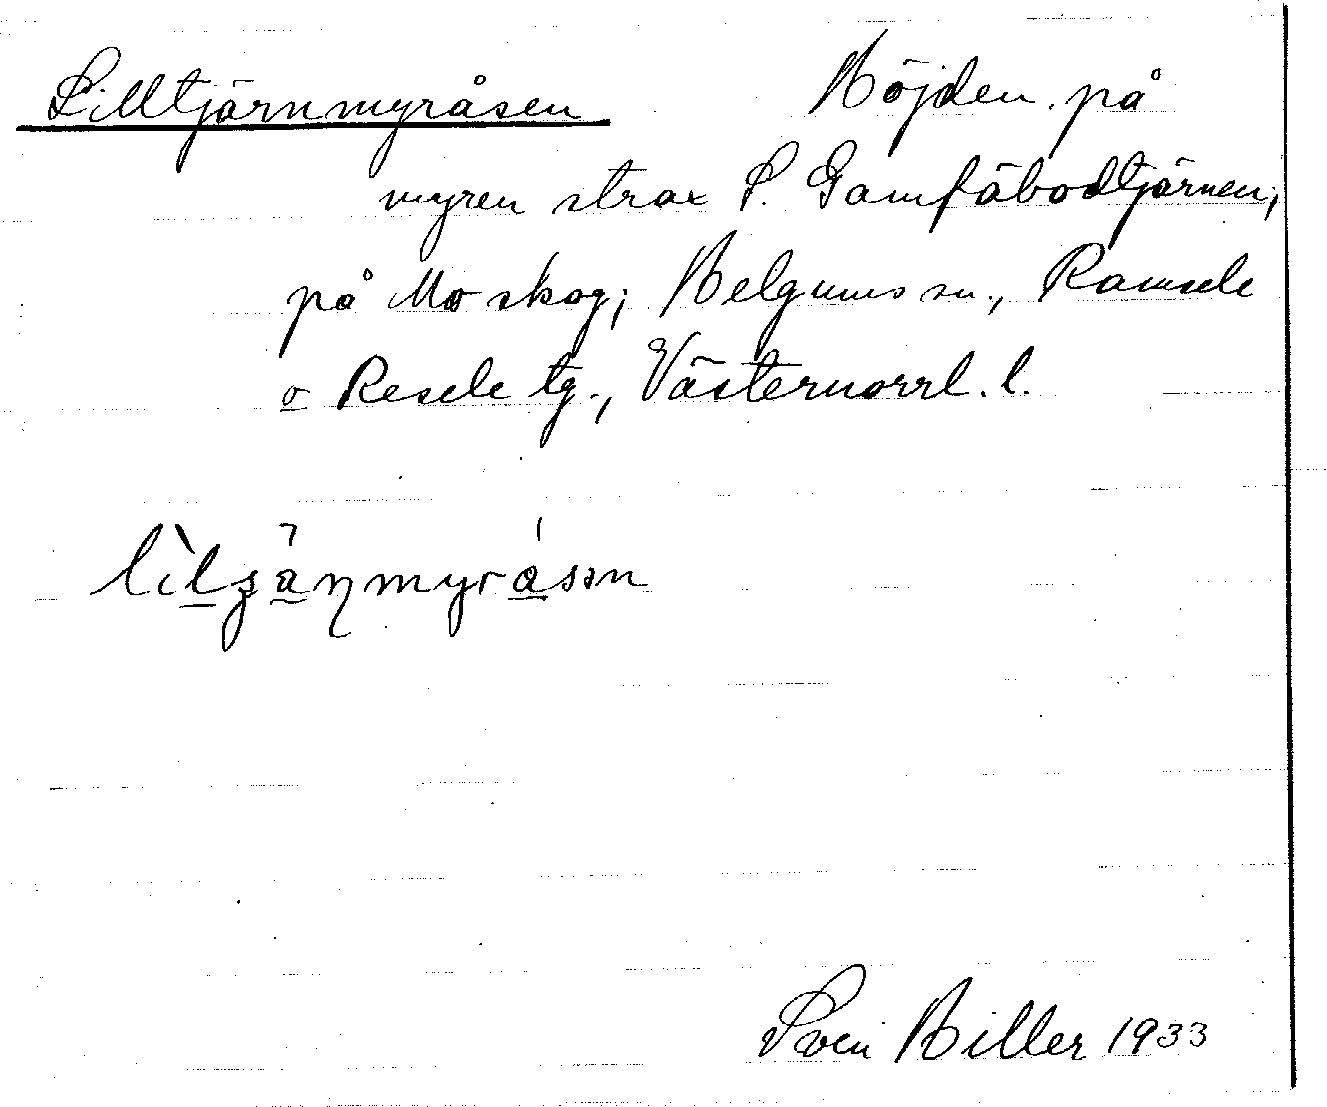 Lilltjärnmyråsen Höjden på
myren strax S. Gamfäbodtjärnen,
på Mo skog; Helgums sn., Ramsele
o Resele tg., Västernorrl. l.
Sven Hiller 1933